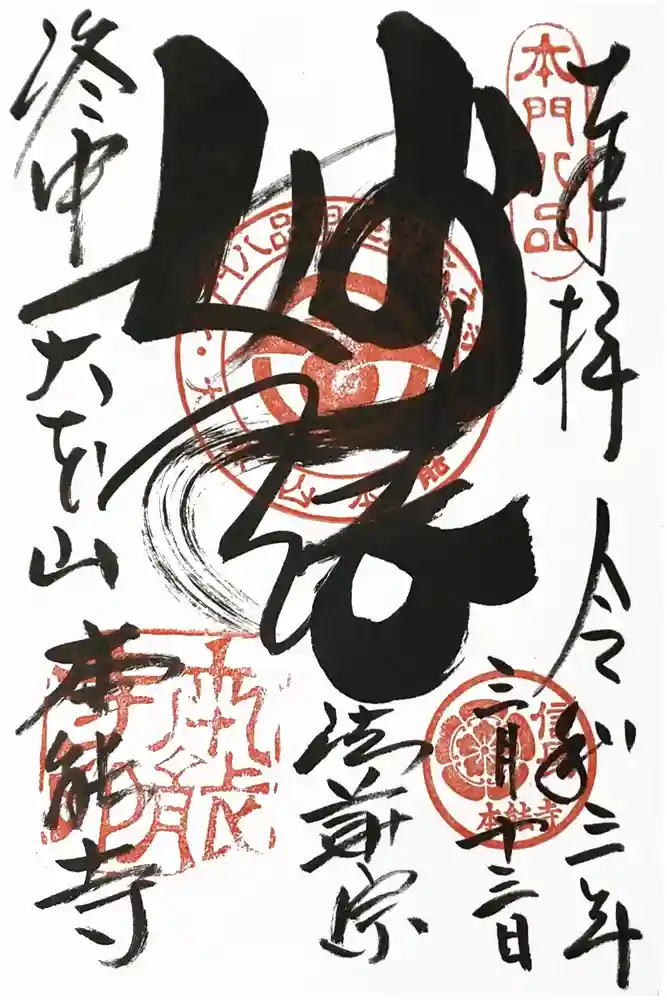 奉拝
本門八品
令和三年
三月十三日
信長
本能寺
妙法
法華宗
洛中
大本山
本能寺
本能寺印